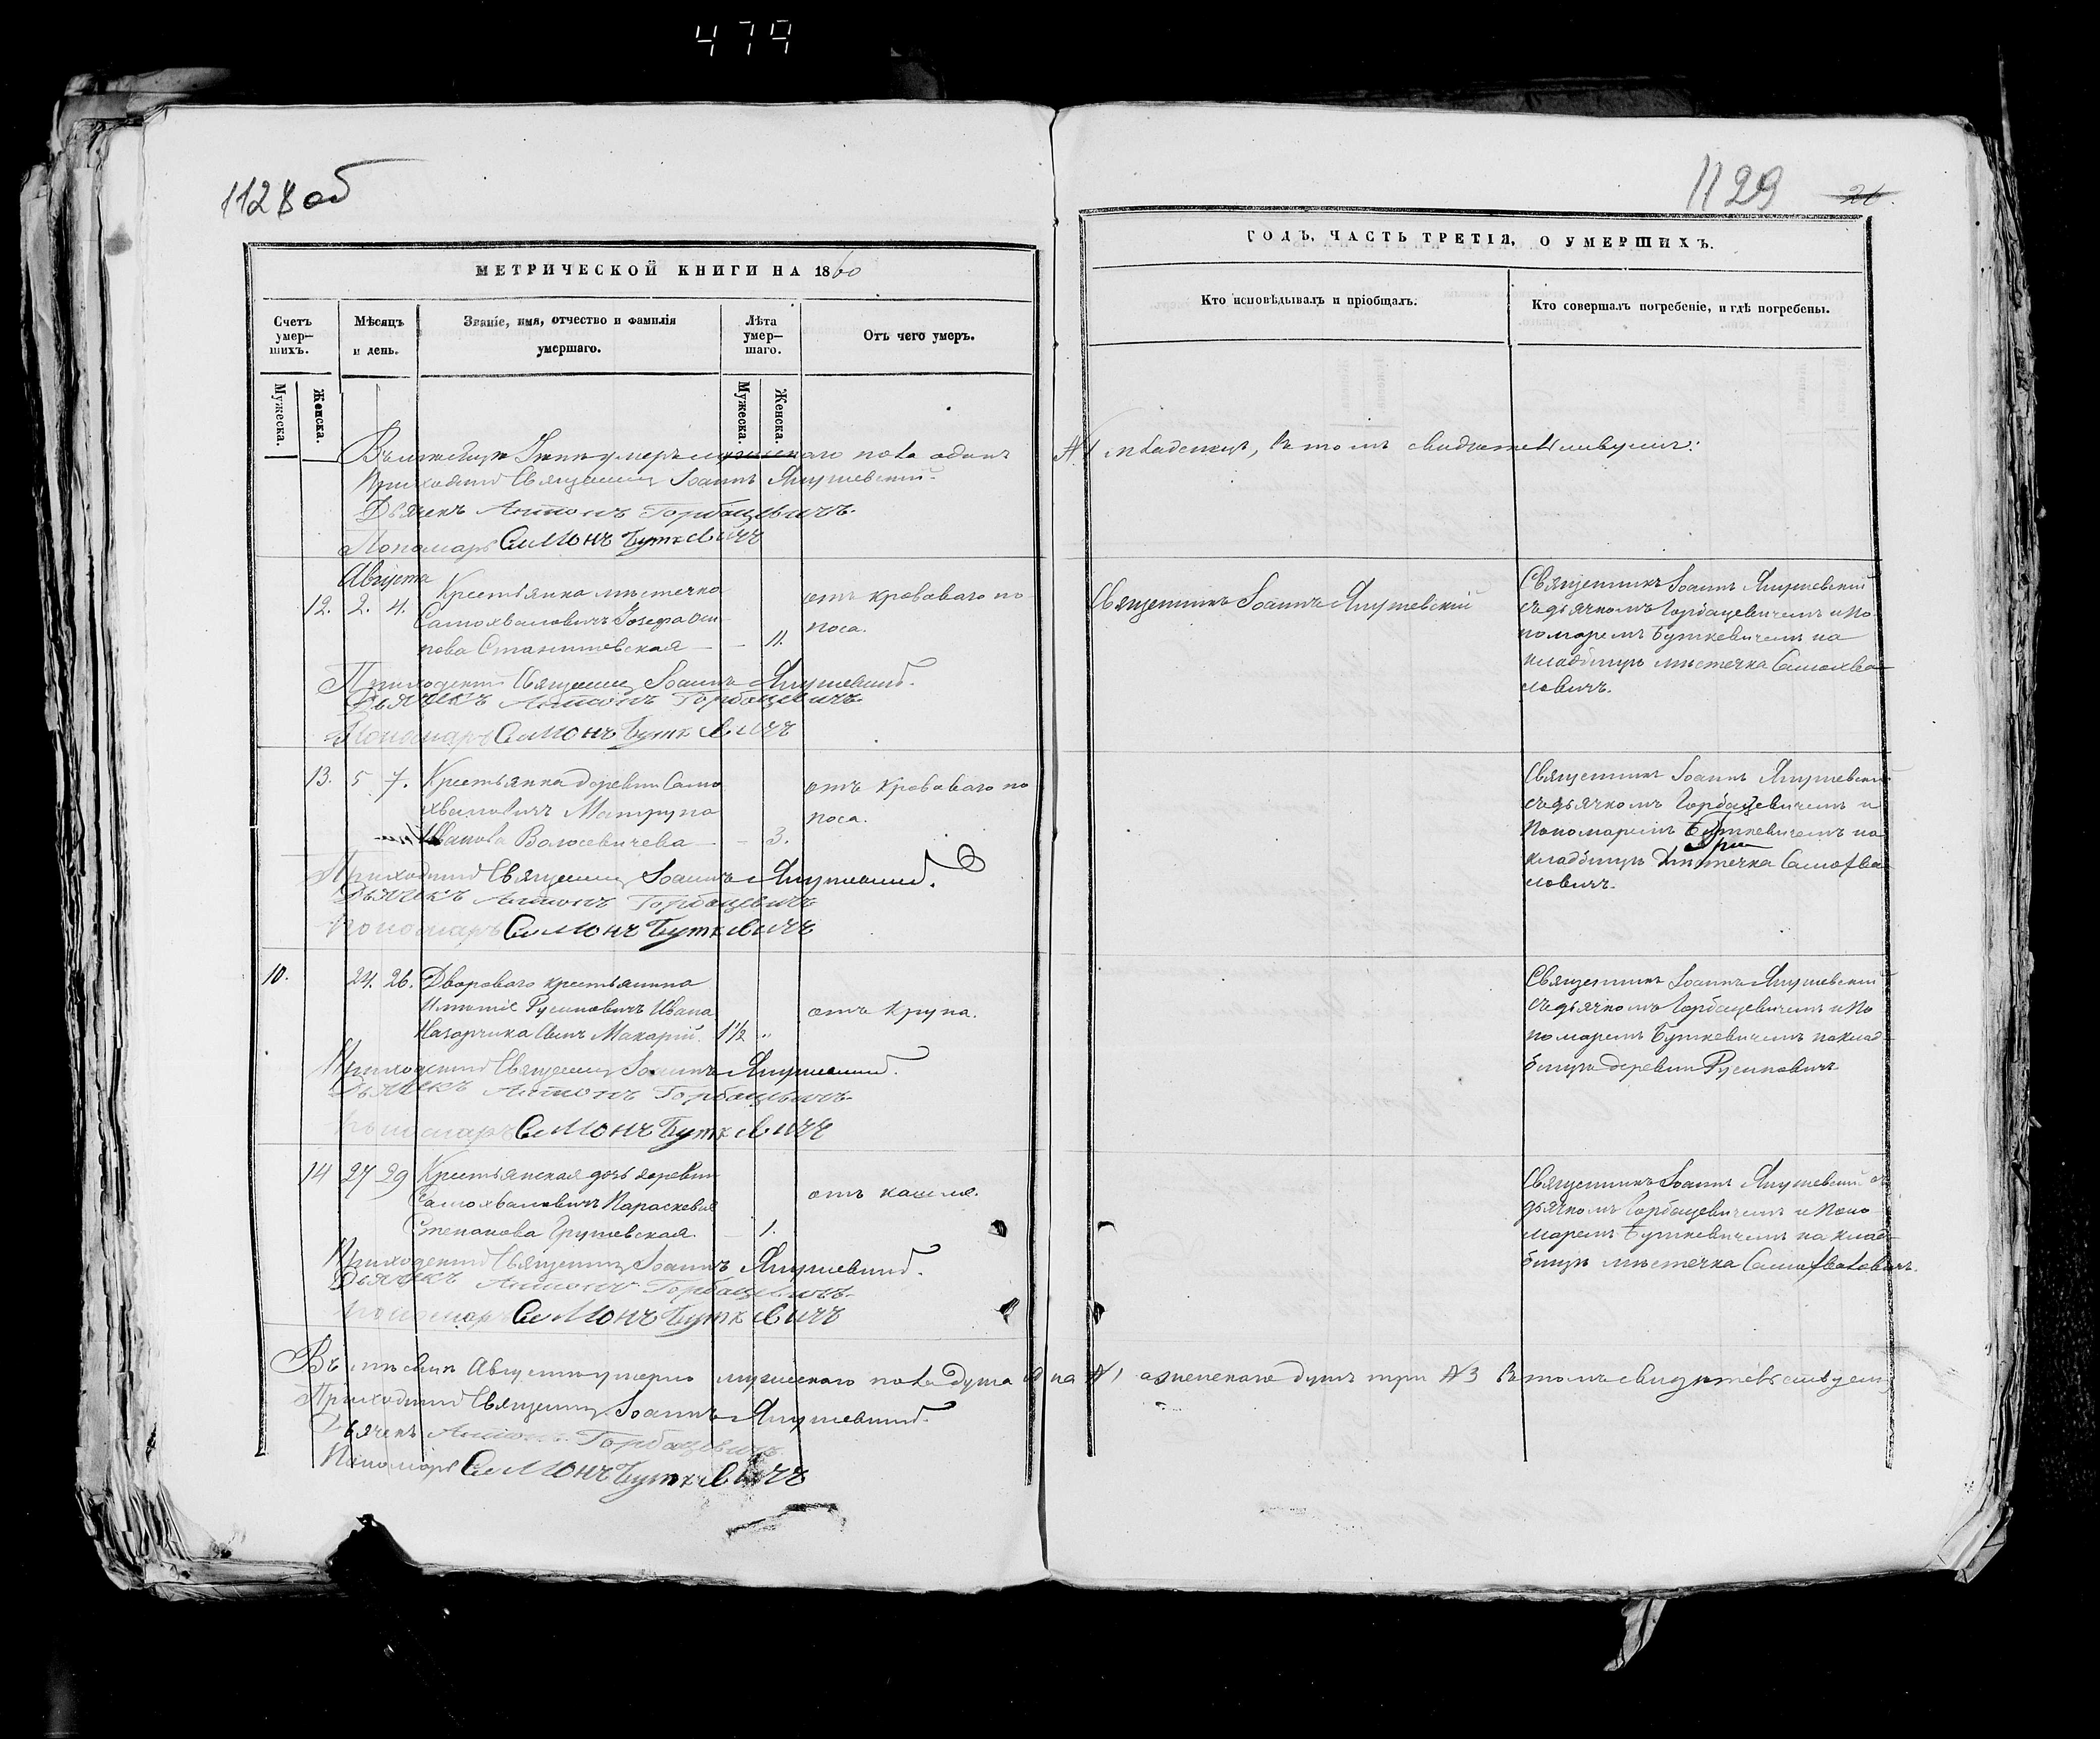 479
1128 об
1129
МЕТРИЧЕСКОЙ КНИГИ НА 1860
ГОДЪ, ЧАСТЬ ТРЕТІЯ, О УМЕРШИХЪ.
Счетъ умер–шихъ.
Мѣсяцъ и день.
Званіе, имя, отчество и фамилія умершаго.
Лѣта умер–шаго.
Отъ чего умеръ.
Кто исповѣдывалъ и пріобщалъ.
Кто совершалъ погребеніе, и гдѣ погребены.
Мужеска.
Женска.
Мужеска.
Женска.
умеръ мужескаго пола одинъ №1 младенецъ, въ томъ свидѣтельствуемъ:
Приходскій Священникъ Іоаннъ Янушевскій.
Дьячекъ Антонъ Горбацевичъ.
Пономарь Симонъ Буткевичъ
Августа
12. 2. 4.
Крестьянка мѣстечка
Самохваловичъ Іозефа Оси-
пова Станишевская
11.
отъ кроваваго по-
носа.
Священникъ Іоаннъ Янушевскій
Священникъ Іоаннъ Янушевскій
съ дьячкомъ Горбацевичемъ и По
номаремъ Буткевичемъ на
кладбищѣ мѣстечка Самохва-
ловичъ.
Приходскій Священникъ Іоаннъ Янушевскій.
Дьячекъ Антонъ Горбацевичъ.
Пономарь Симонъ Буткевичъ
13. 5 7.
Крестьянка деревни Само
хваловичъ Матруна
Иванова Волосевичева
3.
отъ кроваваго по
носа.
Священникъ Іоаннъ Янушевскій
съ дьячкомъ Горбацевичемъ и
Пономаремъ Буткевичемъ на
кладбищѣ мѣстечка Самохва
ловичъ.
Приходскій Священникъ Іоаннъ Янушевскій.
Дьячекъ Антонъ Горбацевичъ
Пономарь Симонъ Буткевичъ
10. 24. 26.
Двороваго крестьянина
имѣнія Русиновичъ Ивана
сынъ Макарій.
1½
отъ крупа.
Священникъ Іоаннъ Янушевскій
съ дьячкомъ Горбацевичемъ и По
номаремъ Буткевичемъ на клад-
бищѣ деревни Русиновичъ
Приходскій Священникъ Іоаннъ Янушевскій.
Дьячекъ Антонъ Горбацевичъ.
Пономарь Симонъ Буткевичъ
14 27 29
Крестьянская дочь деревни
Самохваловичъ Параскевія
Степанова Грушевская.
1.
отъ кашля.
Священникъ Іоаннъ Янушевскій съ
дьячкомъ Горбацевичемъ и Поно
маремъ Буткевичемъ на клад-
бищѣ мѣстечка Самохваловичъ.
Приходскій Священникъ Іоаннъ Янушевскій.
Дьячекъ Антонъ Горбацевичъ.
Пономарь Симонъ Буткевичъ
Въ мѣсяцѣ Августѣ умерло мужескаго пола душа одна №1 а женскаго душъ три №3 въ томъ свидѣтельствуемъ
Приходскій Священникъ Іоаннъ Янушевскій.
Дьячекъ Антонъ Горбацевичъ.
Пономарь Симонъ Буткевичъ